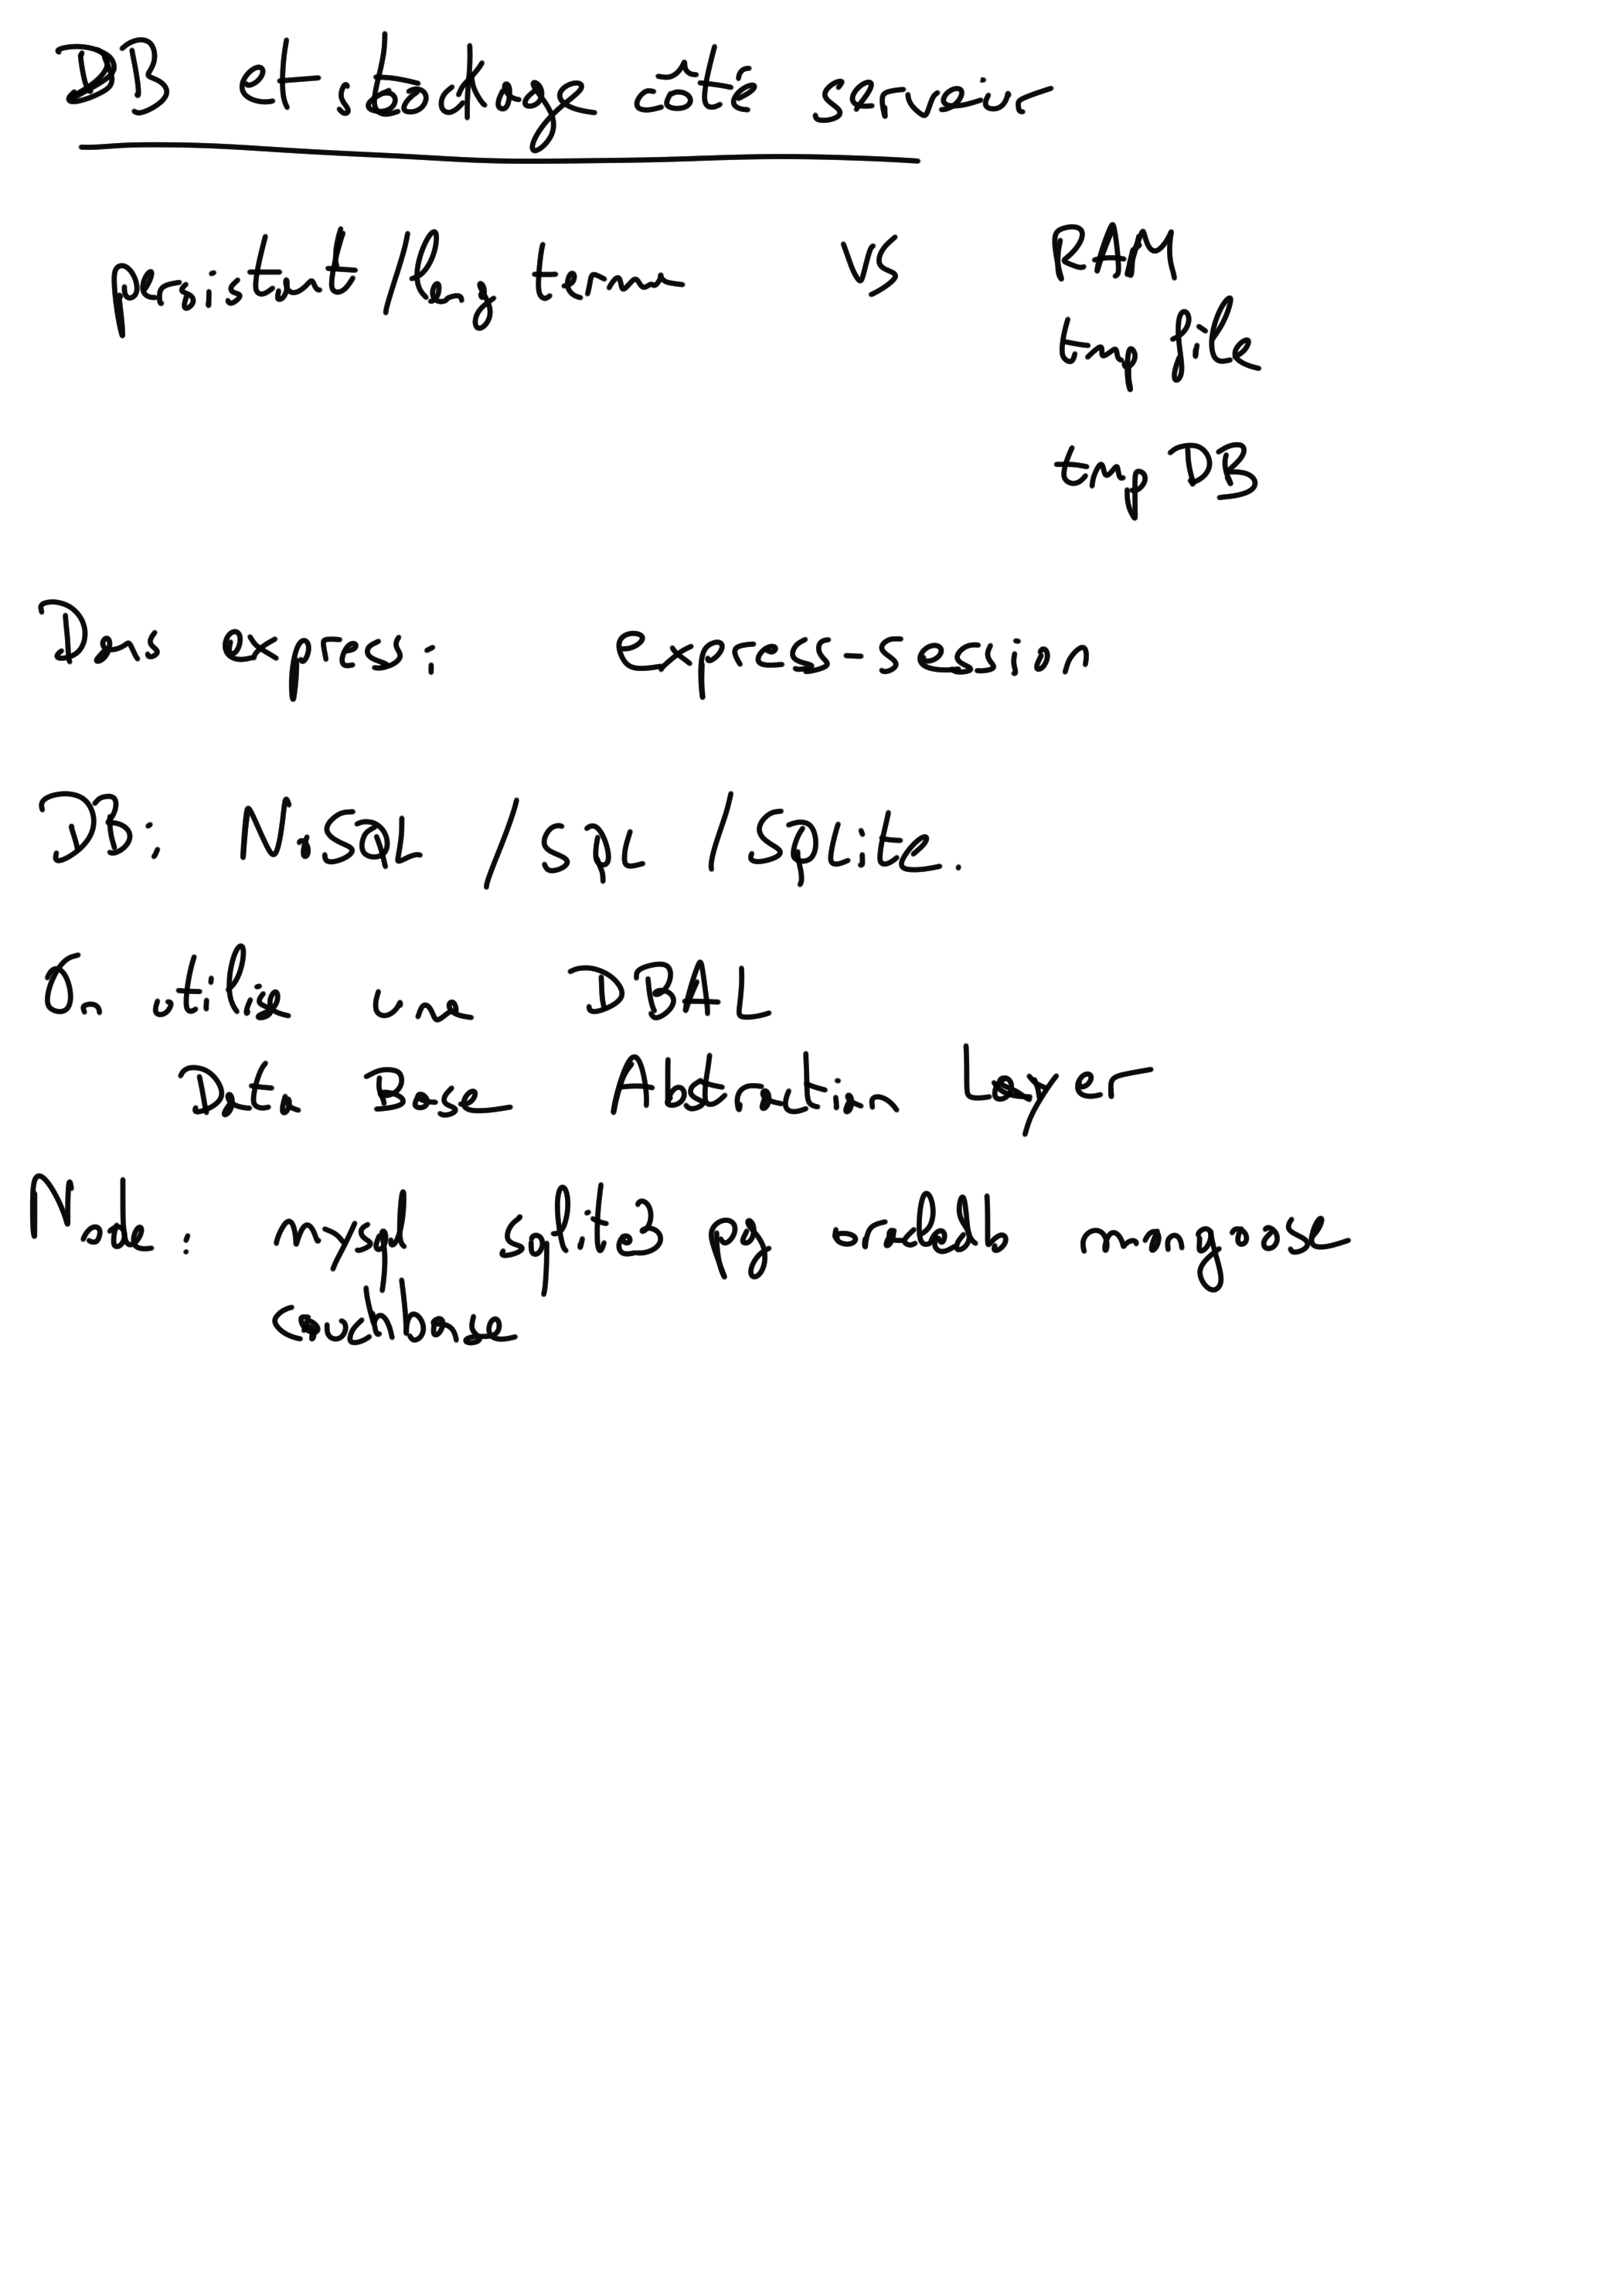 DB et stockage côté serveur
persistent/long terme VS RAM
tmp file
tmp DB
Dans express: express-session
DB: NoSQL / SQL / SQLite.
On utilise une DBAL
Data Base Abstraction Layer
Node: mysql sqlite3 pg oracledb mongoose
couchbase